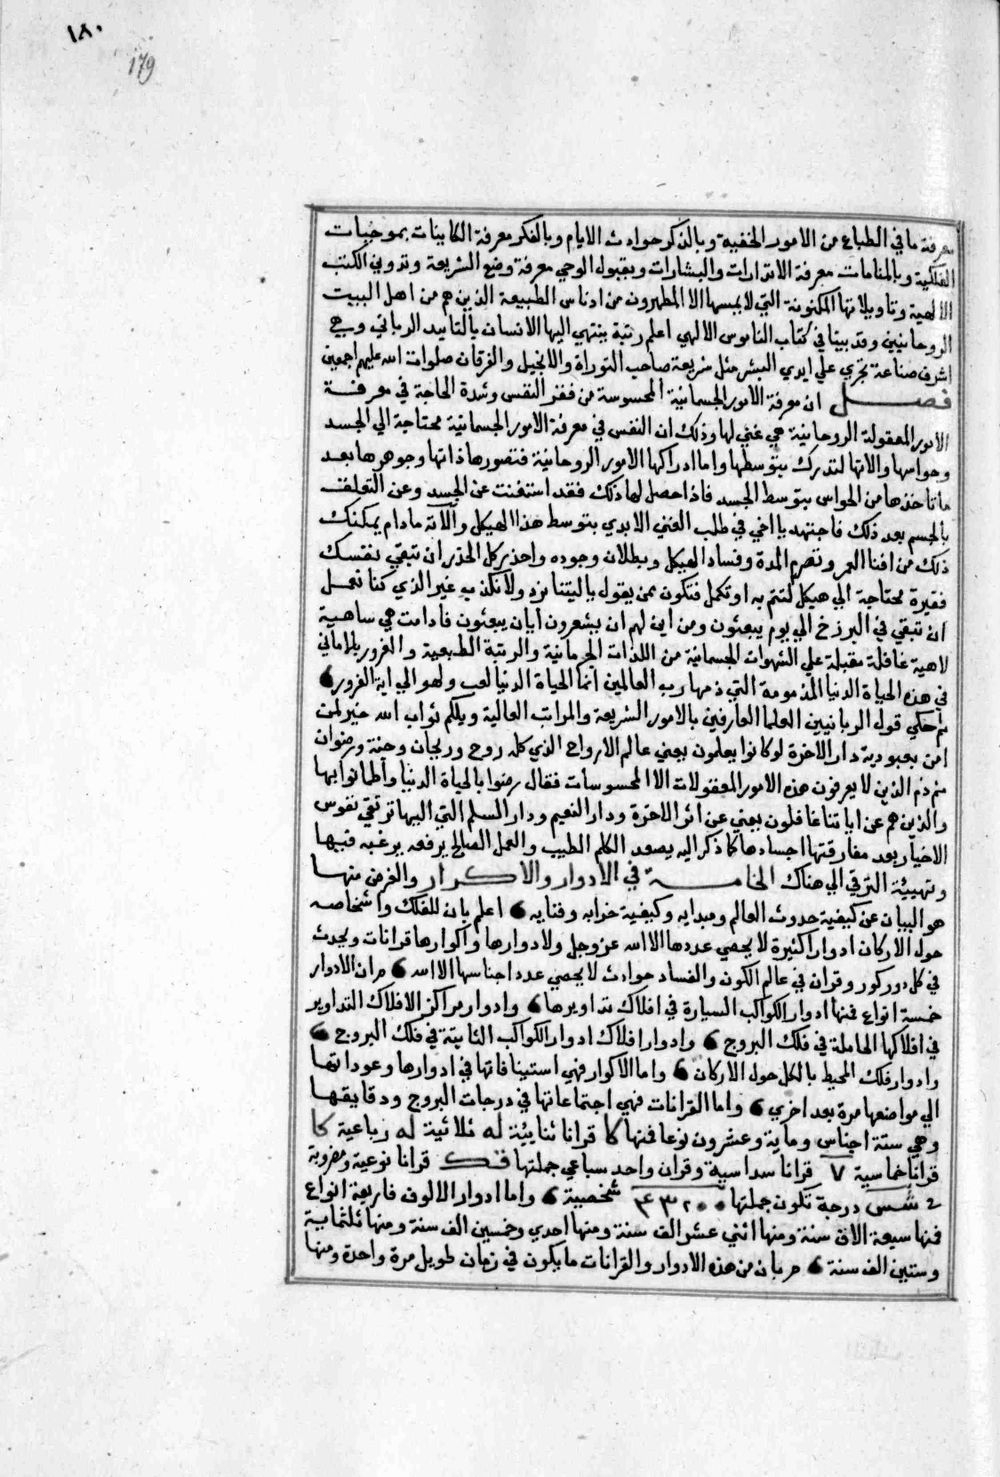 ١٨٠
179
معرفة ما في الطباع من الامور الخفية وبالذكر حوادث الايام وبالفكر معرفة الكاينات بموجبات
الفلكية وبالمنامات معرفة الانذارات والبشارات وبقبول الوحي معرفة وضع الشريعة وتدوين الكتب
الالهية وتاويلاتها المكنونة التي لا يمسها الا المطهرون من ادناس الطبيعة الذين هم من اهل البيت
الروحانيين وقد بينا في كتاب الناموس الالهي اعلم رتبة ينتهي اليها الانسان بالتاييد الرباني وهي
اشرف صناعة تجري علي ايدي البشر مثل شريعة صاحب التوراة والانجيل والفرقان صلوات الله عليهم اجمعين
فصل ان معرفة الامور الجسمانية المحسوسة من فقر النفس وشدة الحاجة في معرفة
الامور المعقولة الروحانية هي غني لها وذلك ان النفس في معرفة الامور الجسمانية محتاجة الي الجسد
وحواسها والاتها لتدرك بتوسطها واما ادراكها الامور الروحانية فتصورها ذاتها وجوهرها بعد
ما تاخذها من الحواس بتوسط الجسد فاذا حصل لها ذلك فقد استغنت عن الجسد وعن التعلق
بالجسم بعد ذلك فاجتهد يا اخي في طلب الغني الابدي بتوسط هذا الهيكل والاته مادام يمكنك
ذلك من افنا العمر وتصرم المدة وفساد الهيكل وبطلان وجوده واحذر كل الحذر ان تبقي نفسك
فقيرة محتاجة الي هيكل لتتم به او تكمل فتكون ممن يقول ياليتنا نرد ولا نكذب غير الذي كنا نعمل
ان تبقي في البرزخ الي يوم يبعثون ومن اين لهم ان يشعرون ايان يبعثون فادامت هي ساهية
لاهية غافلة مقبلة علي الشهوات الجسمانية من اللذات الجرمانية والرتبة الطبيعية والغرور بالاماني
في هذه الحياة الدنيا المذمومة التي ذمها رب العالمين انما الحياة الدنيا لعب ولهو الي اية الغرور
ثم احكي قول الربانيين العلما العارفين بالامور الشريعة والمراتب العالية ويلكم ثواب الله خير لمن
امن بعبودية دار الاخرة لو كانوا يعلمون يعني عالم الارواح الذي كله روح وريحان وجنة ورضوان
ثم ذم الذين لا يعرفون هذه الامور المعقولات الا المحسوسات فقال رضوا بالحياة الدنيا واطمانوا بها
والذين هم عن اياتنا غافلون يعني عن اثر الاخرة ودار النعيم ودار السلم التي اليها ترتقي نفوس
الاخيار بعد مفارقتها اجسادها كما ذكر اليه يصعد الكلم الطيب والعمل الصالح يرفعه يرغبه فيها
وتهيئة الترقي الي هناك الخامسة في الادوار والاكرار والغرض منها
هو البيان عن كيفية حدوث العالم ومبدايه وكيفية خرابه وفنايه اعلم بان للفلك واشخاصه
حول الاركان ادوار اكثيرة لا يحصي عددها الا الله عز وجل ولادوارها واكوارها قرانات ويحدث
في كل دور كور وقران في عالم الكون والفساد حوادث لا يحصي عدد اجناسها الا الله مر ان الادوار
خمسة انواع فمنها ادوار الكواكب السيارة في افلاك تداويرها وادوار مراكز الافلاك التداوير
في افلاكها الحاملة في فلك البروج وادوار افلاك ادوار الكواكب الثابتة في فلك البروج
وادوار فلك المحيط بالكل حول الاركان واما الاكوار فهي استينافاتها في ادوارها وعوداتها
الي مواضعها مرة بعد اخري واما القرانات فهي اجتماعاتها في درجات البروج ودقايقها
وهي ستة اجناس وماية وعشرون نوعا فمنها كا قرانا ثنايية له ثلاثية له رباعية كا
قرانا خماسية ٧ قرانا سداسية وقران واحد سباعي جملتها قك قرانا نوعية ومضروبة
في شس درجة تكون جملتها ٤٣٢٠٠ شخصية واما ادوار الالوف فاربعة انواع
فمنها سبعة الاف سنة ومنها اثني عشر الف سنة ومنها احدي وخمسين الف سنة ومنها ثلثماية
وستين الف سنة مر بان من هذه الادوار والقرانات ما يكون في زمان طويل مرة واحدة ومنها